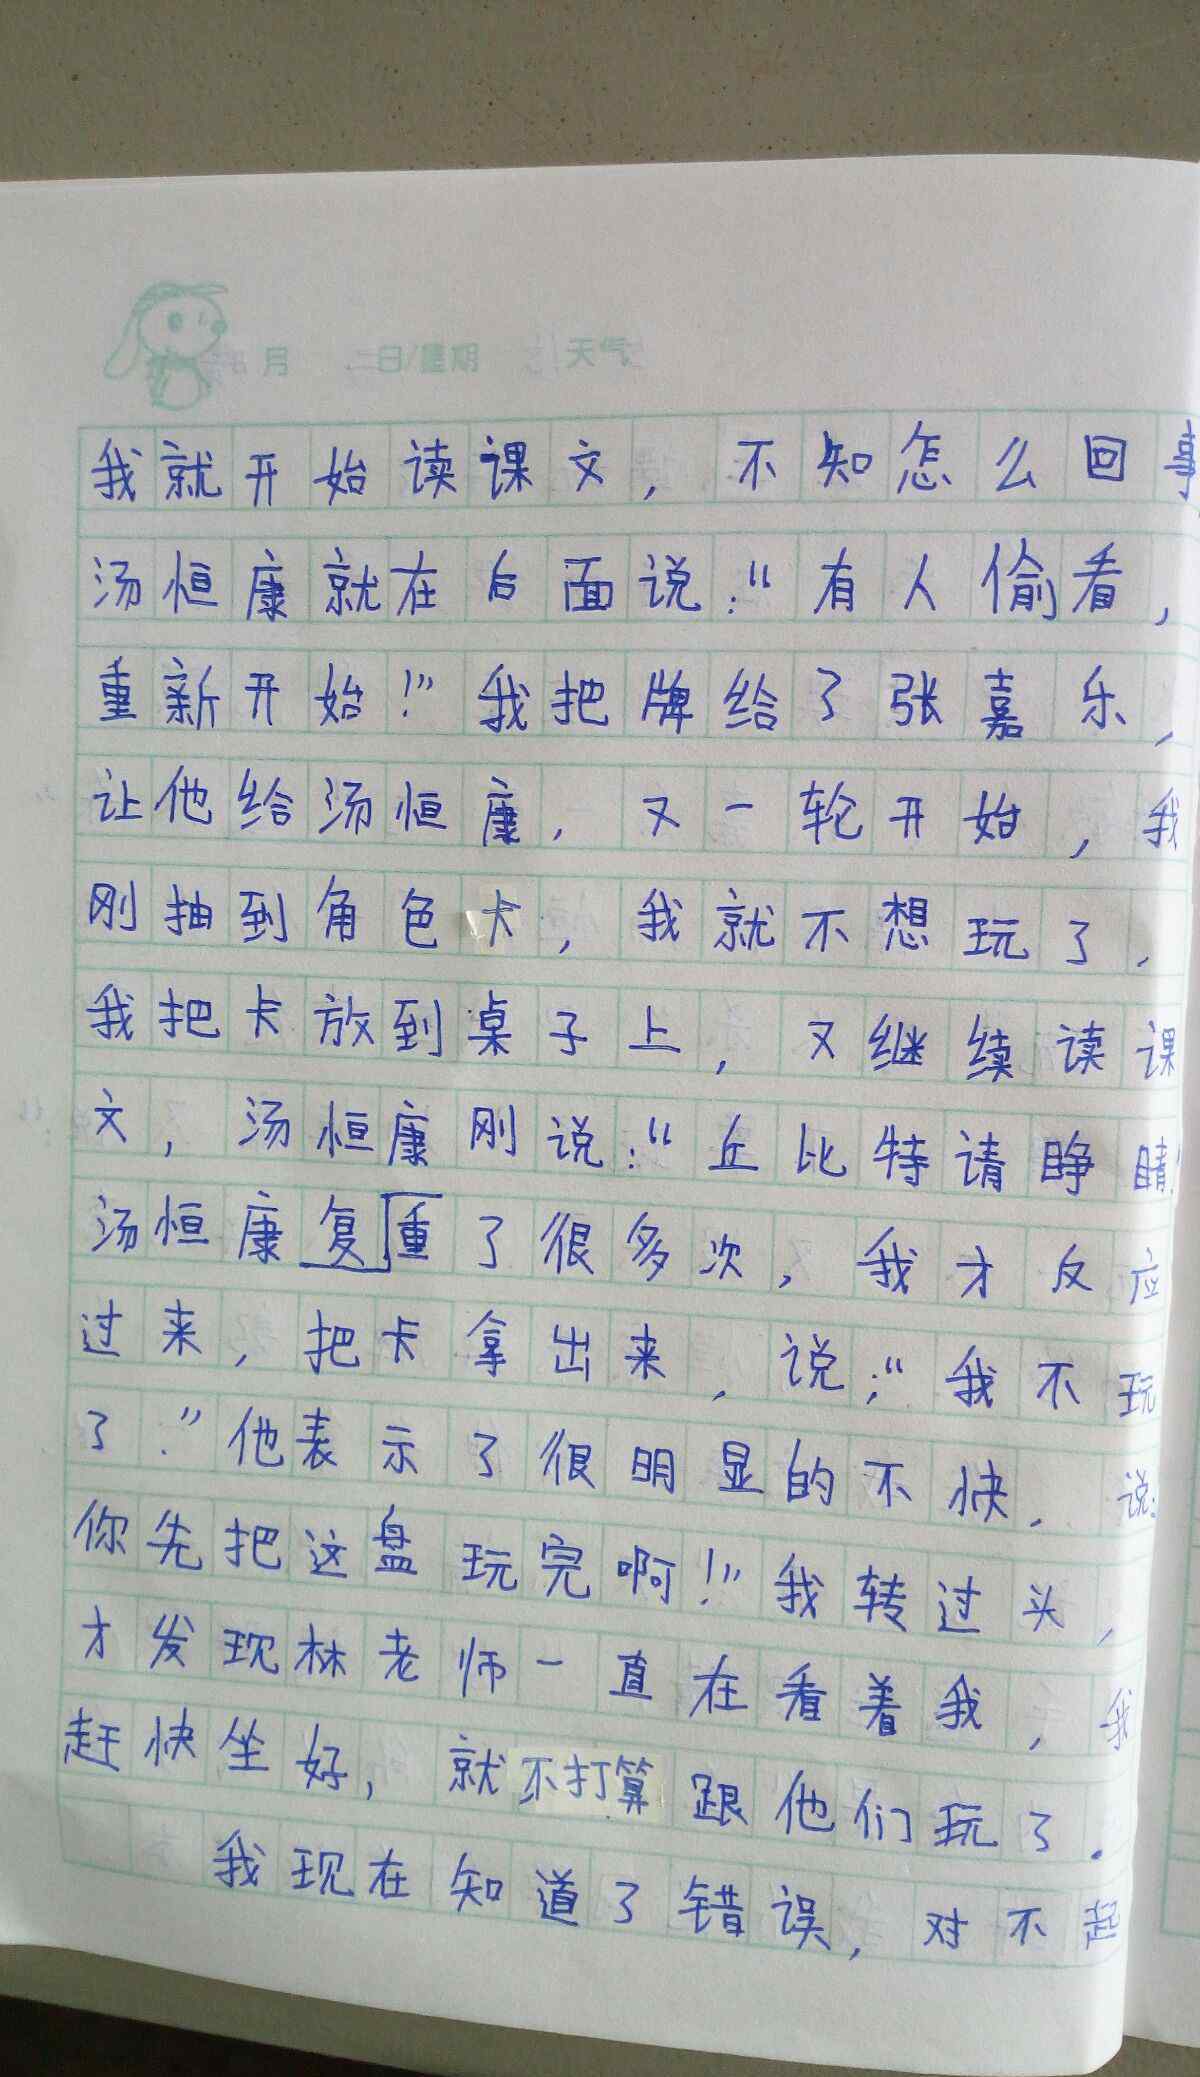 月 日/星期 天气
我就开始读课文，不知怎么回事
汤恒康就在后面说：“有人偷看，
重新开始！”我把牌给了张嘉乐，
让他给汤恒康，又一轮开始，我
刚抽到角色卡，我就不想玩了，
我把卡放到桌子上，又继续读课
文，汤恒康刚说：“丘比特请睁睛！
汤恒康复重了很多次，我才反应
过来，把卡拿出来，说：“我不玩
了.”他表示了很明显的不快，说：
你先把这盘玩完啊！”我转过头，
才发现林老师一直在看着我，我
赶快坐好，就不打算跟他们玩了.
我现在知道了错误，对不起